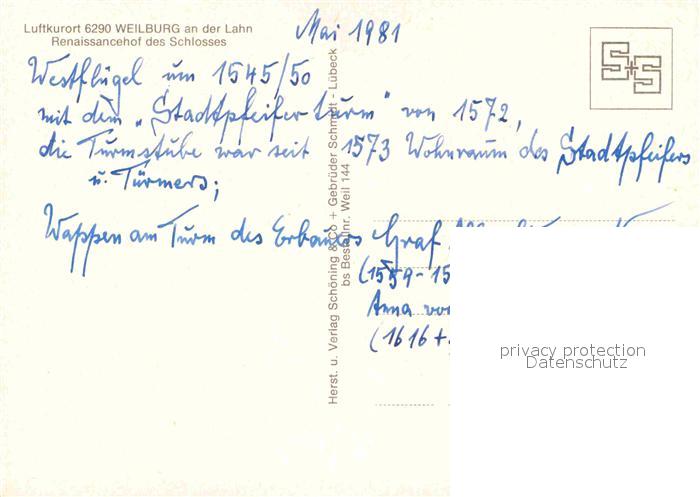 Luftkurort 6290 WEILBURG an der Lahn
Renaissancehof des Schlosses
Mai 1981
Westflügel um 1545/50
mit dem „Stadtpfeiferturm" von 1572,
die Turmstube war seit 1573 Wohnraum des Stadtpfeifers
u. Türmers;
Wappen am Turm des Erbauers Graf
(1559-15
Anna von
(1616 +
Herst. u. Verlag Schöning & Co + Gebrüder Schmidt - Lübeck
bs Bestellnr. Weil 144
S+S
privacy protection
Datenschutz